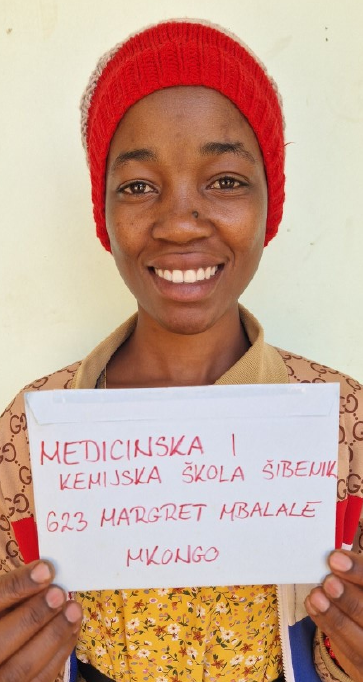 MEDICINSKA I
KEMIJSKA ŠKOLA ŠIBENIK
623 MARGRET MBALALE
MKONGO